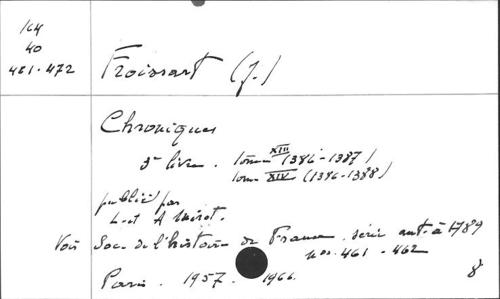 164
40
461-472
Froissart (J.)
Chroniques
3e livre. tome XIII (1386-1387)
tome XIV (1386-1388)
publié par
L. et A Mirot.
Voir Soc. de l'histoire de France. série ant. à 1789
nos. 461-462
Paris. 1957. 1966. 8°